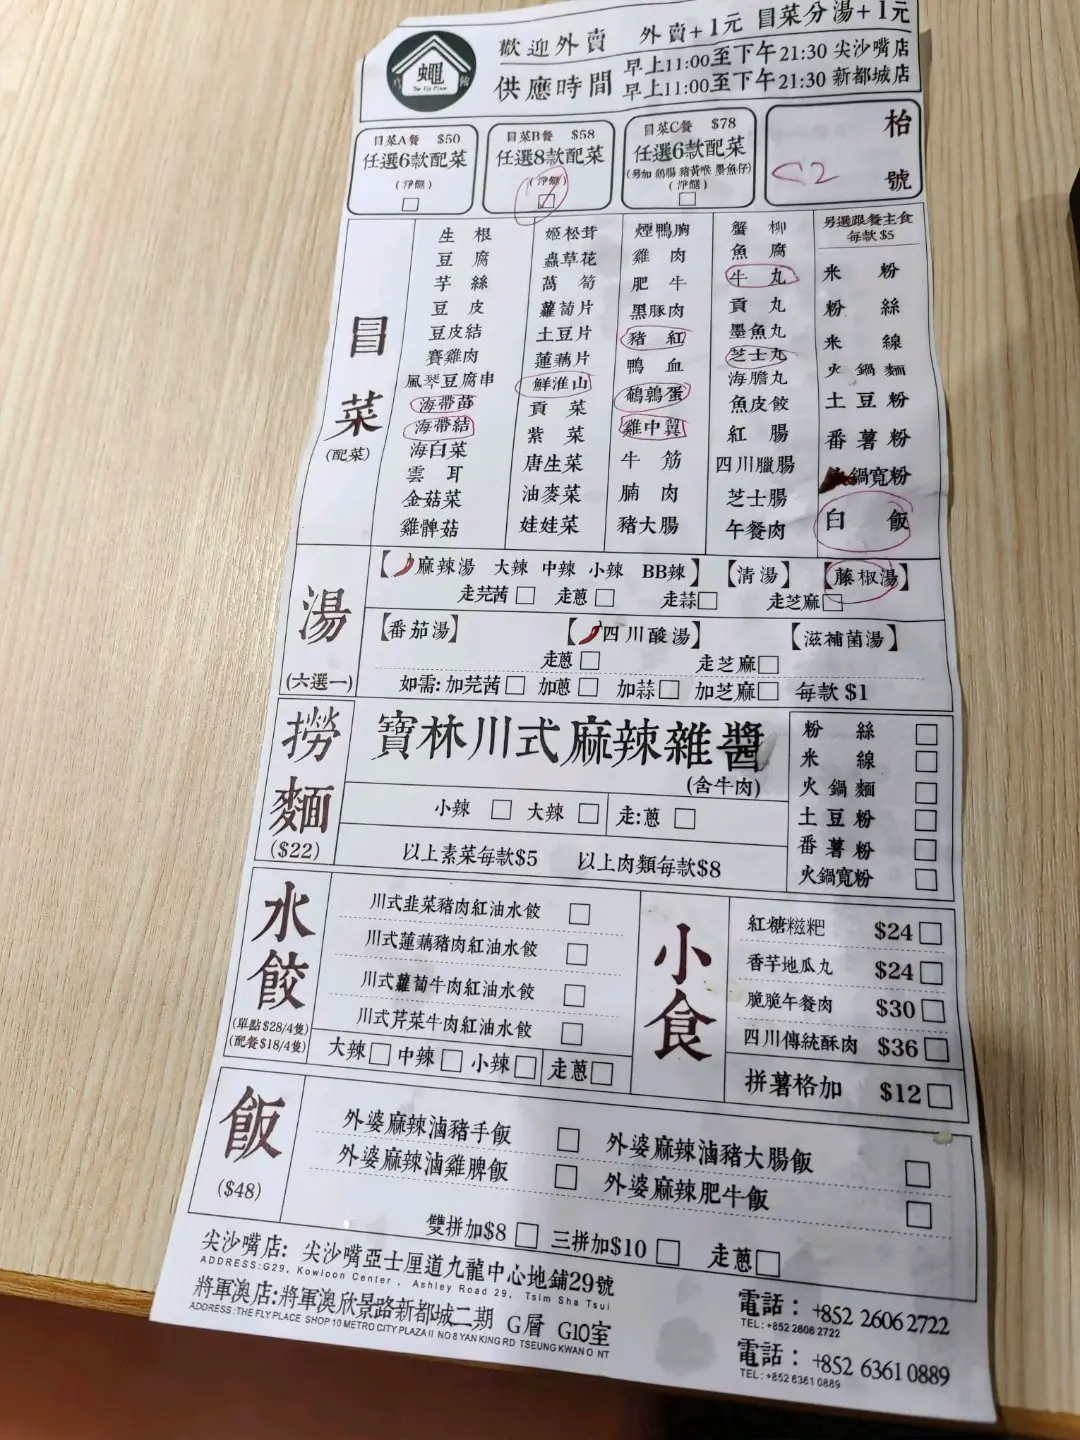 歡迎外賣 外賣+1元 冒菜分湯+1元
供應時間 早上11:00至下午21:30 尖沙嘴店
早上11:00至下午21:30 新都城店
蠅
The Fly Place
冒菜A餐 $50
任選6款配菜
(淨餸)
冒菜B餐 $58
任選8款配菜
(淨餸)
冒菜C餐 $78
任選6款配菜
(另加 鵝腸 豬黃喉 墨魚仔)
(淨餸)
枱號
C2
冒菜
(配菜)
生根
豆腐
芋絲
豆皮
豆皮結
賽雞肉
風琴豆腐串
海帶苗
海帶結
海白菜
雲耳
金菇菜
雞髀菇
姬松茸
蟲草花
萵筍
蘿蔔片
土豆片
蓮藕片
鮮淮山
貢菜
紫菜
唐生菜
油麥菜
娃娃菜
煙鴨胸
雞肉
肥牛
黑豚肉
豬紅
鴨血
鵪鶉蛋
雞中翼
牛筋
腩肉
豬大腸
蟹柳
魚腐
牛丸
貢丸
墨魚丸
芝士丸
海膽丸
魚皮餃
紅腸
四川臘腸
芝士腸
午餐肉
另選跟餐主食
每款$5
米粉
粉絲
米線
火鍋麵
土豆粉
番薯粉
火鍋寬粉
白飯
湯
(六選一)
【麻辣湯 大辣 中辣 小辣 BB辣】 【清湯】 【藤椒湯】
走芫茜 走蔥 走蒜 走芝麻
【番茄湯】 【四川酸湯】 【滋補菌湯】
走蔥 走芝麻
如需:加芫茜 加蔥 加蒜 加芝麻 每款 $1
撈麵
($22)
寶林川式麻辣雜醬
(含牛肉)
小辣 大辣 走:蔥
以上素菜每款$5 以上肉類每款$8
粉絲
米線
火鍋麵
土豆粉
番薯粉
火鍋寬粉
水餃
(單點$28/4隻)
(配餐$18/4隻)
川式韭菜豬肉紅油水餃
川式蓮藕豬肉紅油水餃
川式蘿蔔牛肉紅油水餃
川式芹菜牛肉紅油水餃
大辣 中辣 小辣 走蔥
小食
紅糖糍粑 $24
香芋地瓜丸 $24
脆脆午餐肉 $30
四川傳統酥肉 $36
拼薯格加 $12
飯
($48)
外婆麻辣滷豬手飯 外婆麻辣滷豬大腸飯
外婆麻辣滷雞脾飯 外婆麻辣肥牛飯
雙拼加$8 三拼加$10 走蔥
尖沙嘴店: 尖沙嘴亞士厘道九龍中心地鋪29號
ADDRESS:G29, Kowloon Center, Ashley Road 29, Tsim Sha Tsui
將軍澳店:將軍澳欣景路新都城二期 G層 G10室
ADDRESS:THE FLY PLACE SHOP 10 METRO CITY PLAZA II NO 8 YAN KING RD TSEUNG KWAN O NT
電話: +852 2606 2722
TEL:+852 2606 2722
電話: +852 6361 0889
TEL:+852 6361 0889